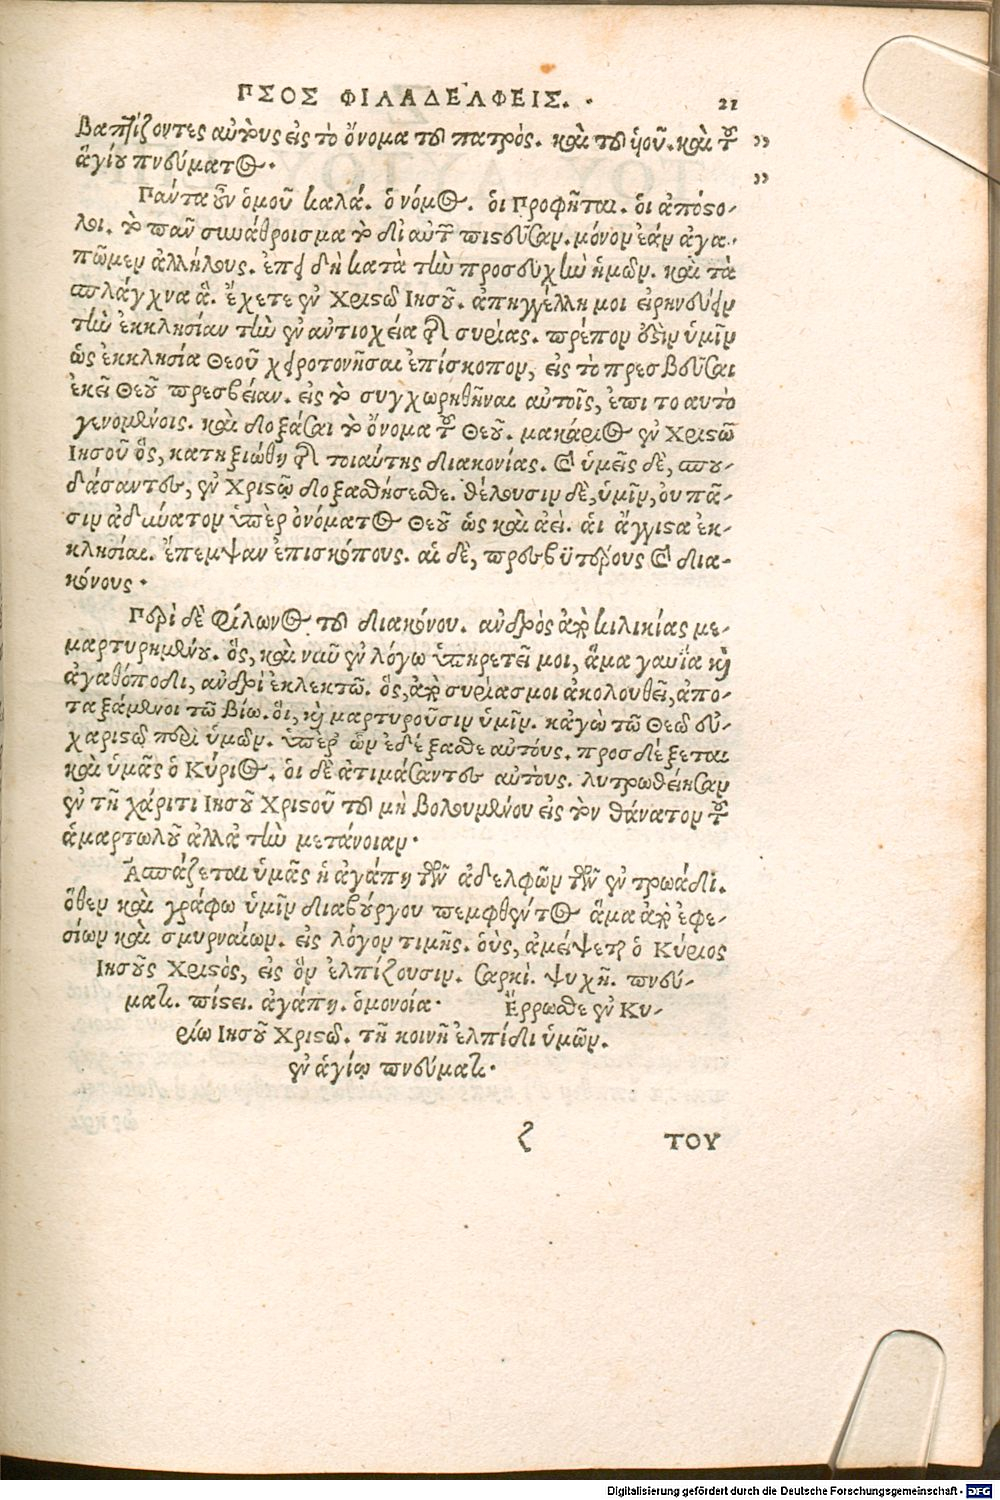 ΠΣΟΣ ΦΙΛΑΔΕΛΦΕΙΣ.
21
βαπτίζοντες αὐτοὺς εἰς τὸ ὄνομα τοῦ πατρός. καὶ τοῦ ὑιοῦ. καὶ τοῦ ”
ἁγίου πνεύματος. ”
Πάντα οὖν ὁμοῦ καλά. ὁ νόμος. ὁι Προφῆται. ὁι ἀπόστο-
λοι. τὸ πᾶν συνάθροισμα τὸ δι αὐτῶν πιστεῦσαν. μόνον ἐάν ἀγα-
πῶμεν ἀλλήλους. ἐπεὶ δὴ κατὰ τὴν προσευχὴν ἡμῶν. καὶ τὰ
σπλάγχνα ἃ. ἔχετε ἐν Χριστῷ Ιησοῦ. ἀπηγγέλλη μοι εἰρηνεύειν
τὴν ἐκκλησίαν τὴν ἐν ἀντιοχεία τῆς συρίας. πρέπον ἐστὶν ὑμῖν
ὡς ἐκκλησία Θεοῦ χειροτονῆσαι ἐπίσκοπον, εἰς τὸ πρεσβεῦσαι
ἐκεῖ Θεοῦ πρεσβείαν. εἰς τὸ συγχωρηθῆναι αὐτοῖς, ἐπι το αυτὸ
γενομένοις. καὶ δοξάσαι τὸ ὄνομα τοῦ Θεοῦ. μακάριος ἐν Χριστῶ
Ιησοῦ ὃς, κατηξιώθη τῆς τοιαύτης διακονίας. καὶ ὑμεῖς δὲ, σπου-
δάσαντες, ἐν Χριστῷ δοξασθήσεσθε. θέλουσιν δὲ, ὑμῖν, ου πᾶ-
σιν ἀδύνατον ὑπὲρ ὀνόματος Θεοῦ ὡς καὶ ἀεὶ. ἁι ἄγγιστα ἐκ-
κλησίαι. ἔπεμψαν ἐπισκόπους. αἱ δὲ, πρεσβϋτέρους καὶ δια-
κόνους.
Περὶ δὲ φίλωνος τοῦ διακόνου. ανδρὸς ἀπὸ κιλικίας με-
μαρτυρημένου. ὃς, καὶ νῦν ἐν λόγω ὑπηρετεῖ μοι, ἅμα γαυΐα καὶ
ἀγαθόποδι, ανδρὶ ἐκλεκτῶ. ὃς, ἀπὸ συρίασ μοι ἀκολουθεῖ, ἀπο-
ταξάμενοι τῶ βίω. ὃι, καὶ μαρτυροῦσιν ὑμῖν. κἀγὼ τῶ Θεῷ εὐ-
χαριστῶ περὶ ὑμῶν. ὑπὲρ ὧν ἐδέξασθε αὐτόυς. προσδέξεται
καὶ ὑμᾶς ὁ Κύριος. ὁι δὲ ἀτιμάσαντες αὐτὸυς. λυτρωθείησαν
ἐν τῆ χάριτι Ιησοῦ Χριστοῦ τοῦ μὴ βολουμένου εἰς τὸν θάνατον τοῦ
ἁμαρτωλοῦ ἀλλὰ τὴν μετάνοιαν.
Ἀσπάζεται ὑμᾶς ἡ ἀγάπη τῶν ἀδελφῶν τῶν ἐν τρωάδι.
ὅθεν καὶ γράφω ὑμῖν διαβύργου πεμφθέντος ἅμα ἀπὸ ἐφε-
σίων καὶ σμυρναίων. εἰς λόγον τιμῆς. ὁὺς, ἀμείψεται ὁ Κύριος
Ιησοῦς Χριστὸς, εἰς ὃν ἐλπίζουσιν. σαρκὶ. ψυχῆ. πνεύ-
ματι. πίστει. ἀγάπη. ὁμονοία. Ἔρρωσθε ἐν Κυ-
ρίω Ιησοῦ Χριστῷ. τῆ κοινῆ ἐλπίδι ὑμῶν.
ἐν ἁγίῳ πνεύματι.
ζ ΤΟΥ
Digitalisierung gefördert durch die Deutsche Forschungsgemeinschaft - DFG